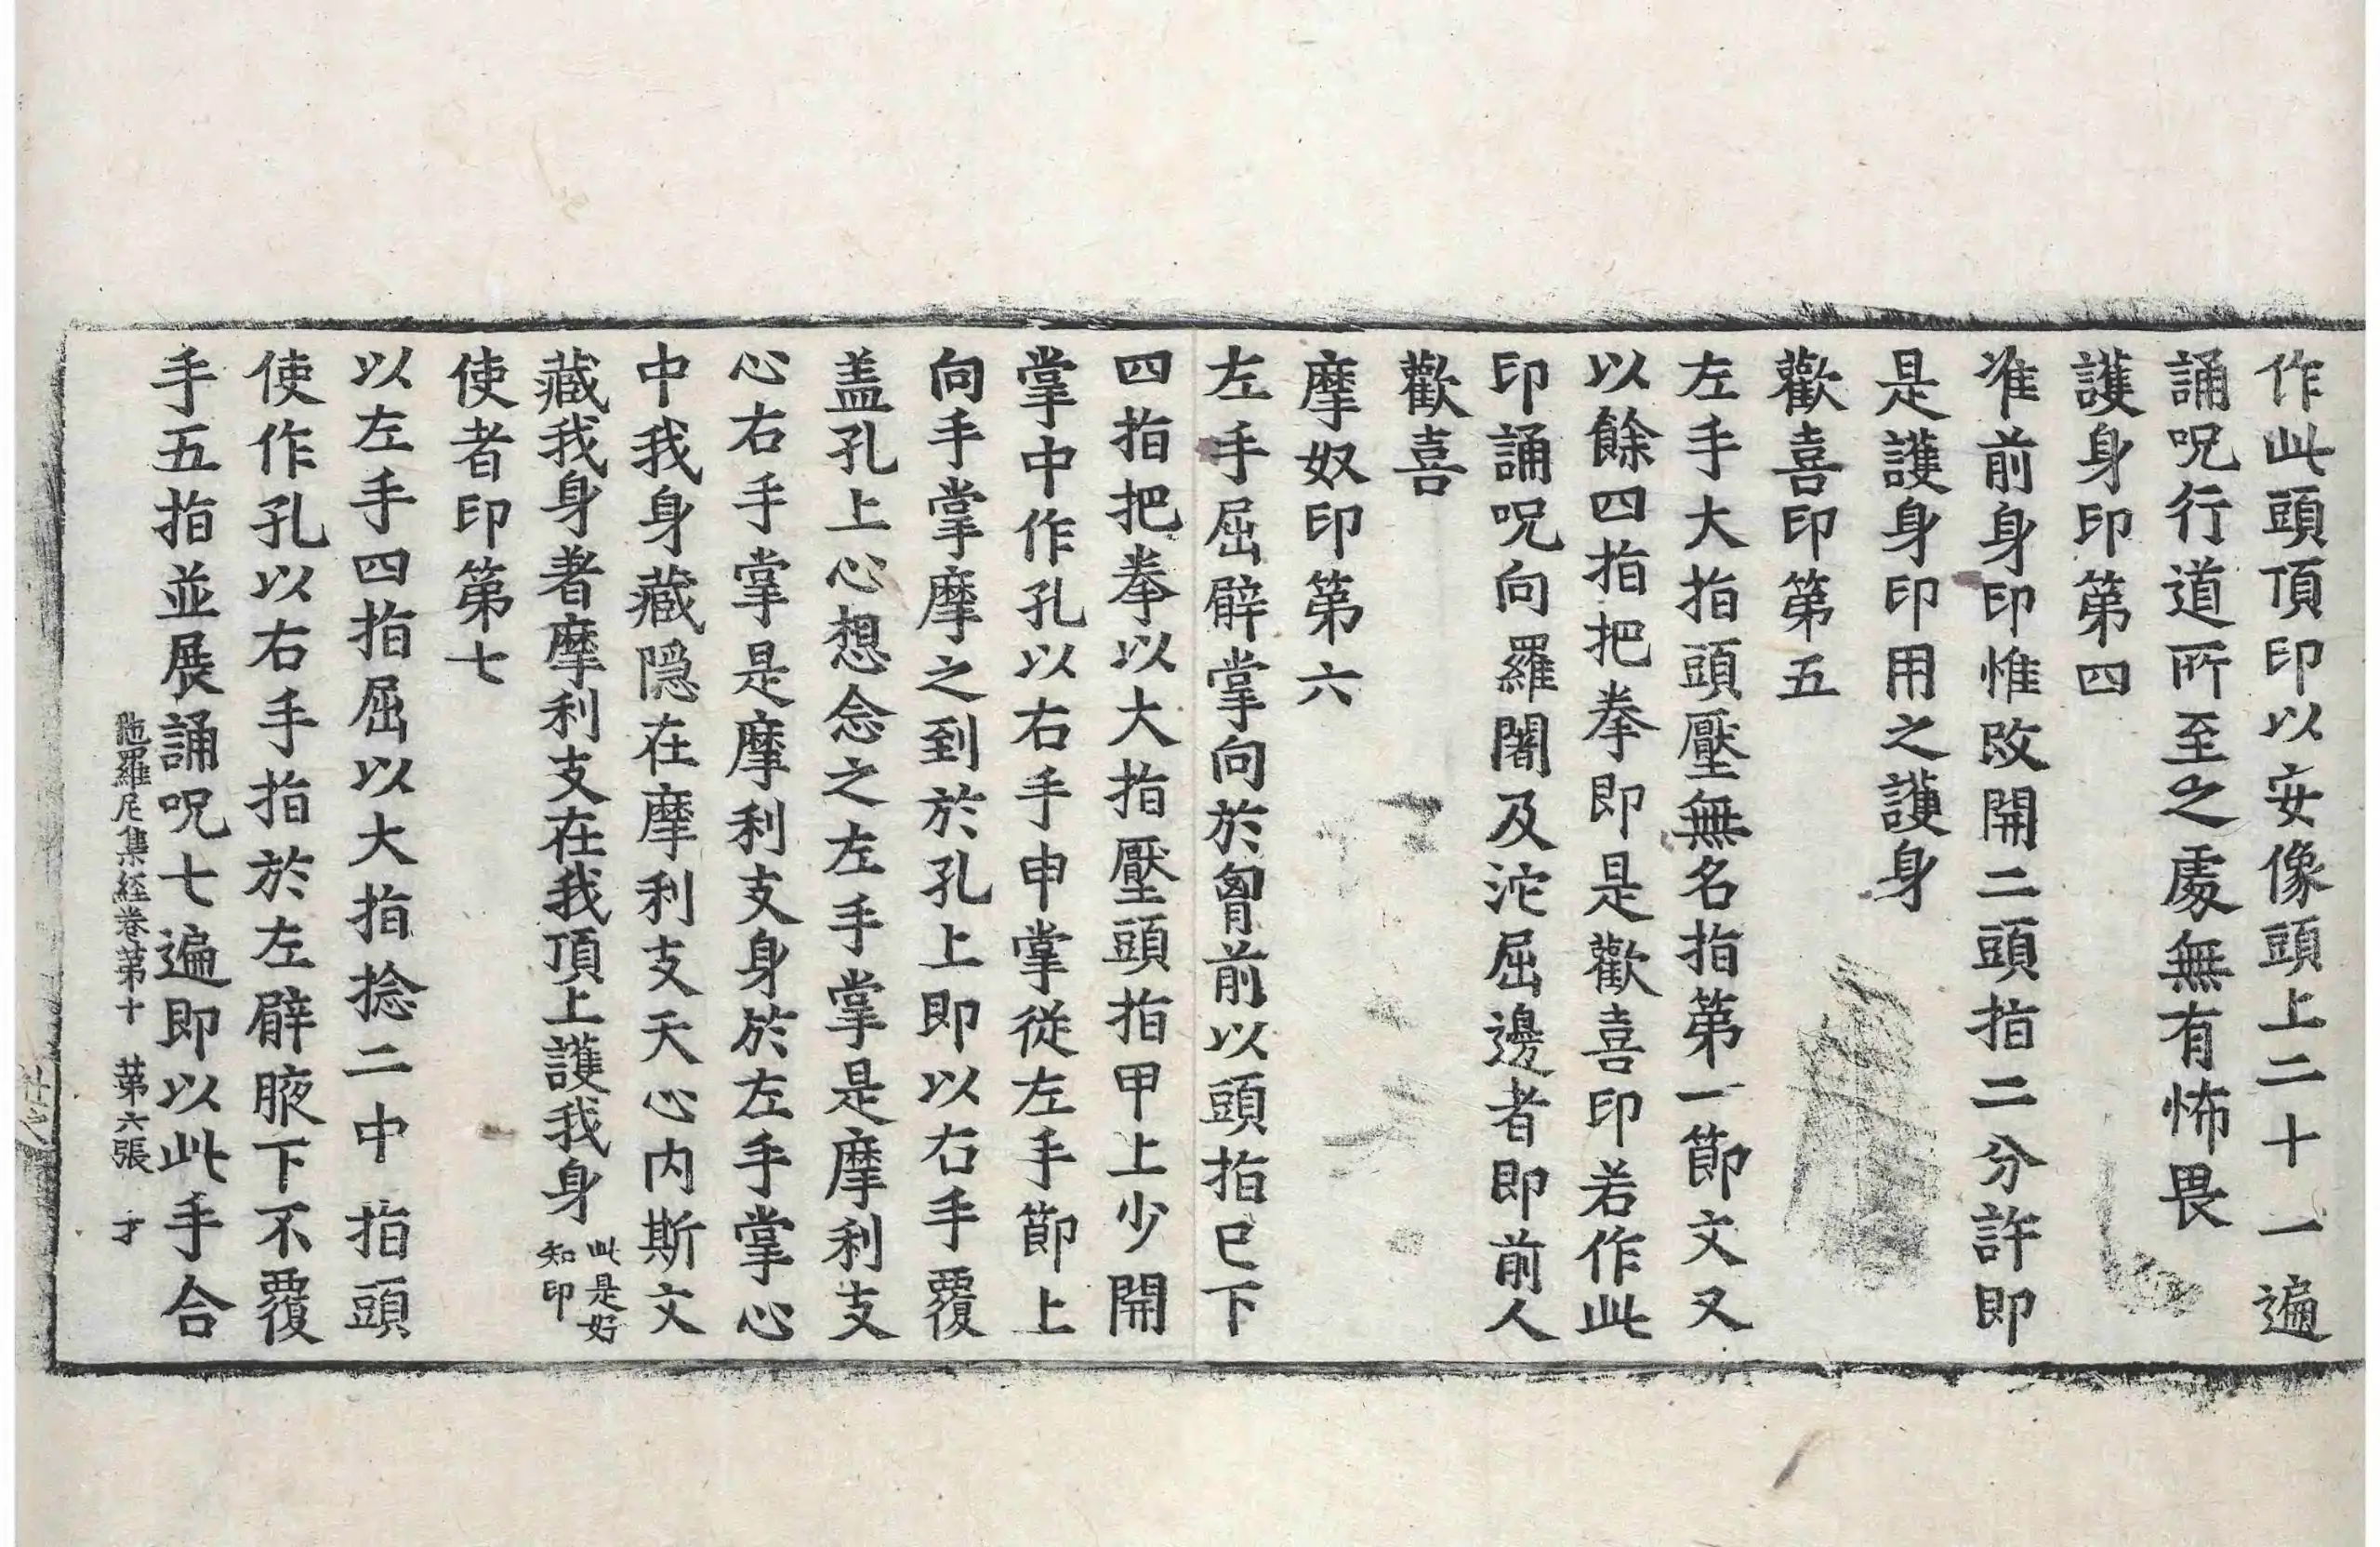 作此頭頂印以安像頭上二十一遍
誦呪行道所至之處無有怖畏
護身印第四
准前身印惟改開二頭指二分許即
是護身印用之護身
歡喜印第五
左手大指頭壓無名指第一節文又
以餘四指把拳即是歡喜印若作此
印誦呪向羅闍及沱屈邊者即前人
歡喜
摩奴印第六
左手屈臂掌向於胷前以頭指已下
四指把拳以大指壓頭指甲上少開
掌中作孔以右手申掌從左手節上
向手掌摩之到於孔上即以右手覆
盖孔上心想念之左手掌是摩利支
心右手掌是摩利支身於左手掌心
中我身藏隱在摩利支天心内斯文
藏我身著摩利支在我頂上護我身
此是好
知印
使者印第七
以左手四指屈以大指捻二中指頭
使作孔以右手指於左臂腋下不覆
手五指並展誦呪七遍即以此手合
陁羅尼集経卷第十 第六張 才